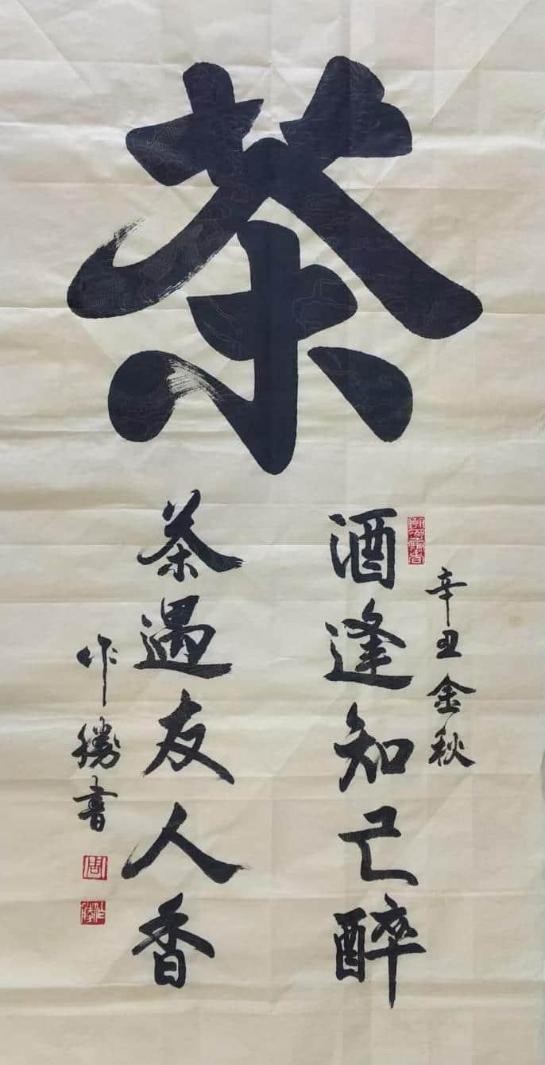 茶
辛丑金秋
酒逢知己醉
茶遇友人香
作勝書
周